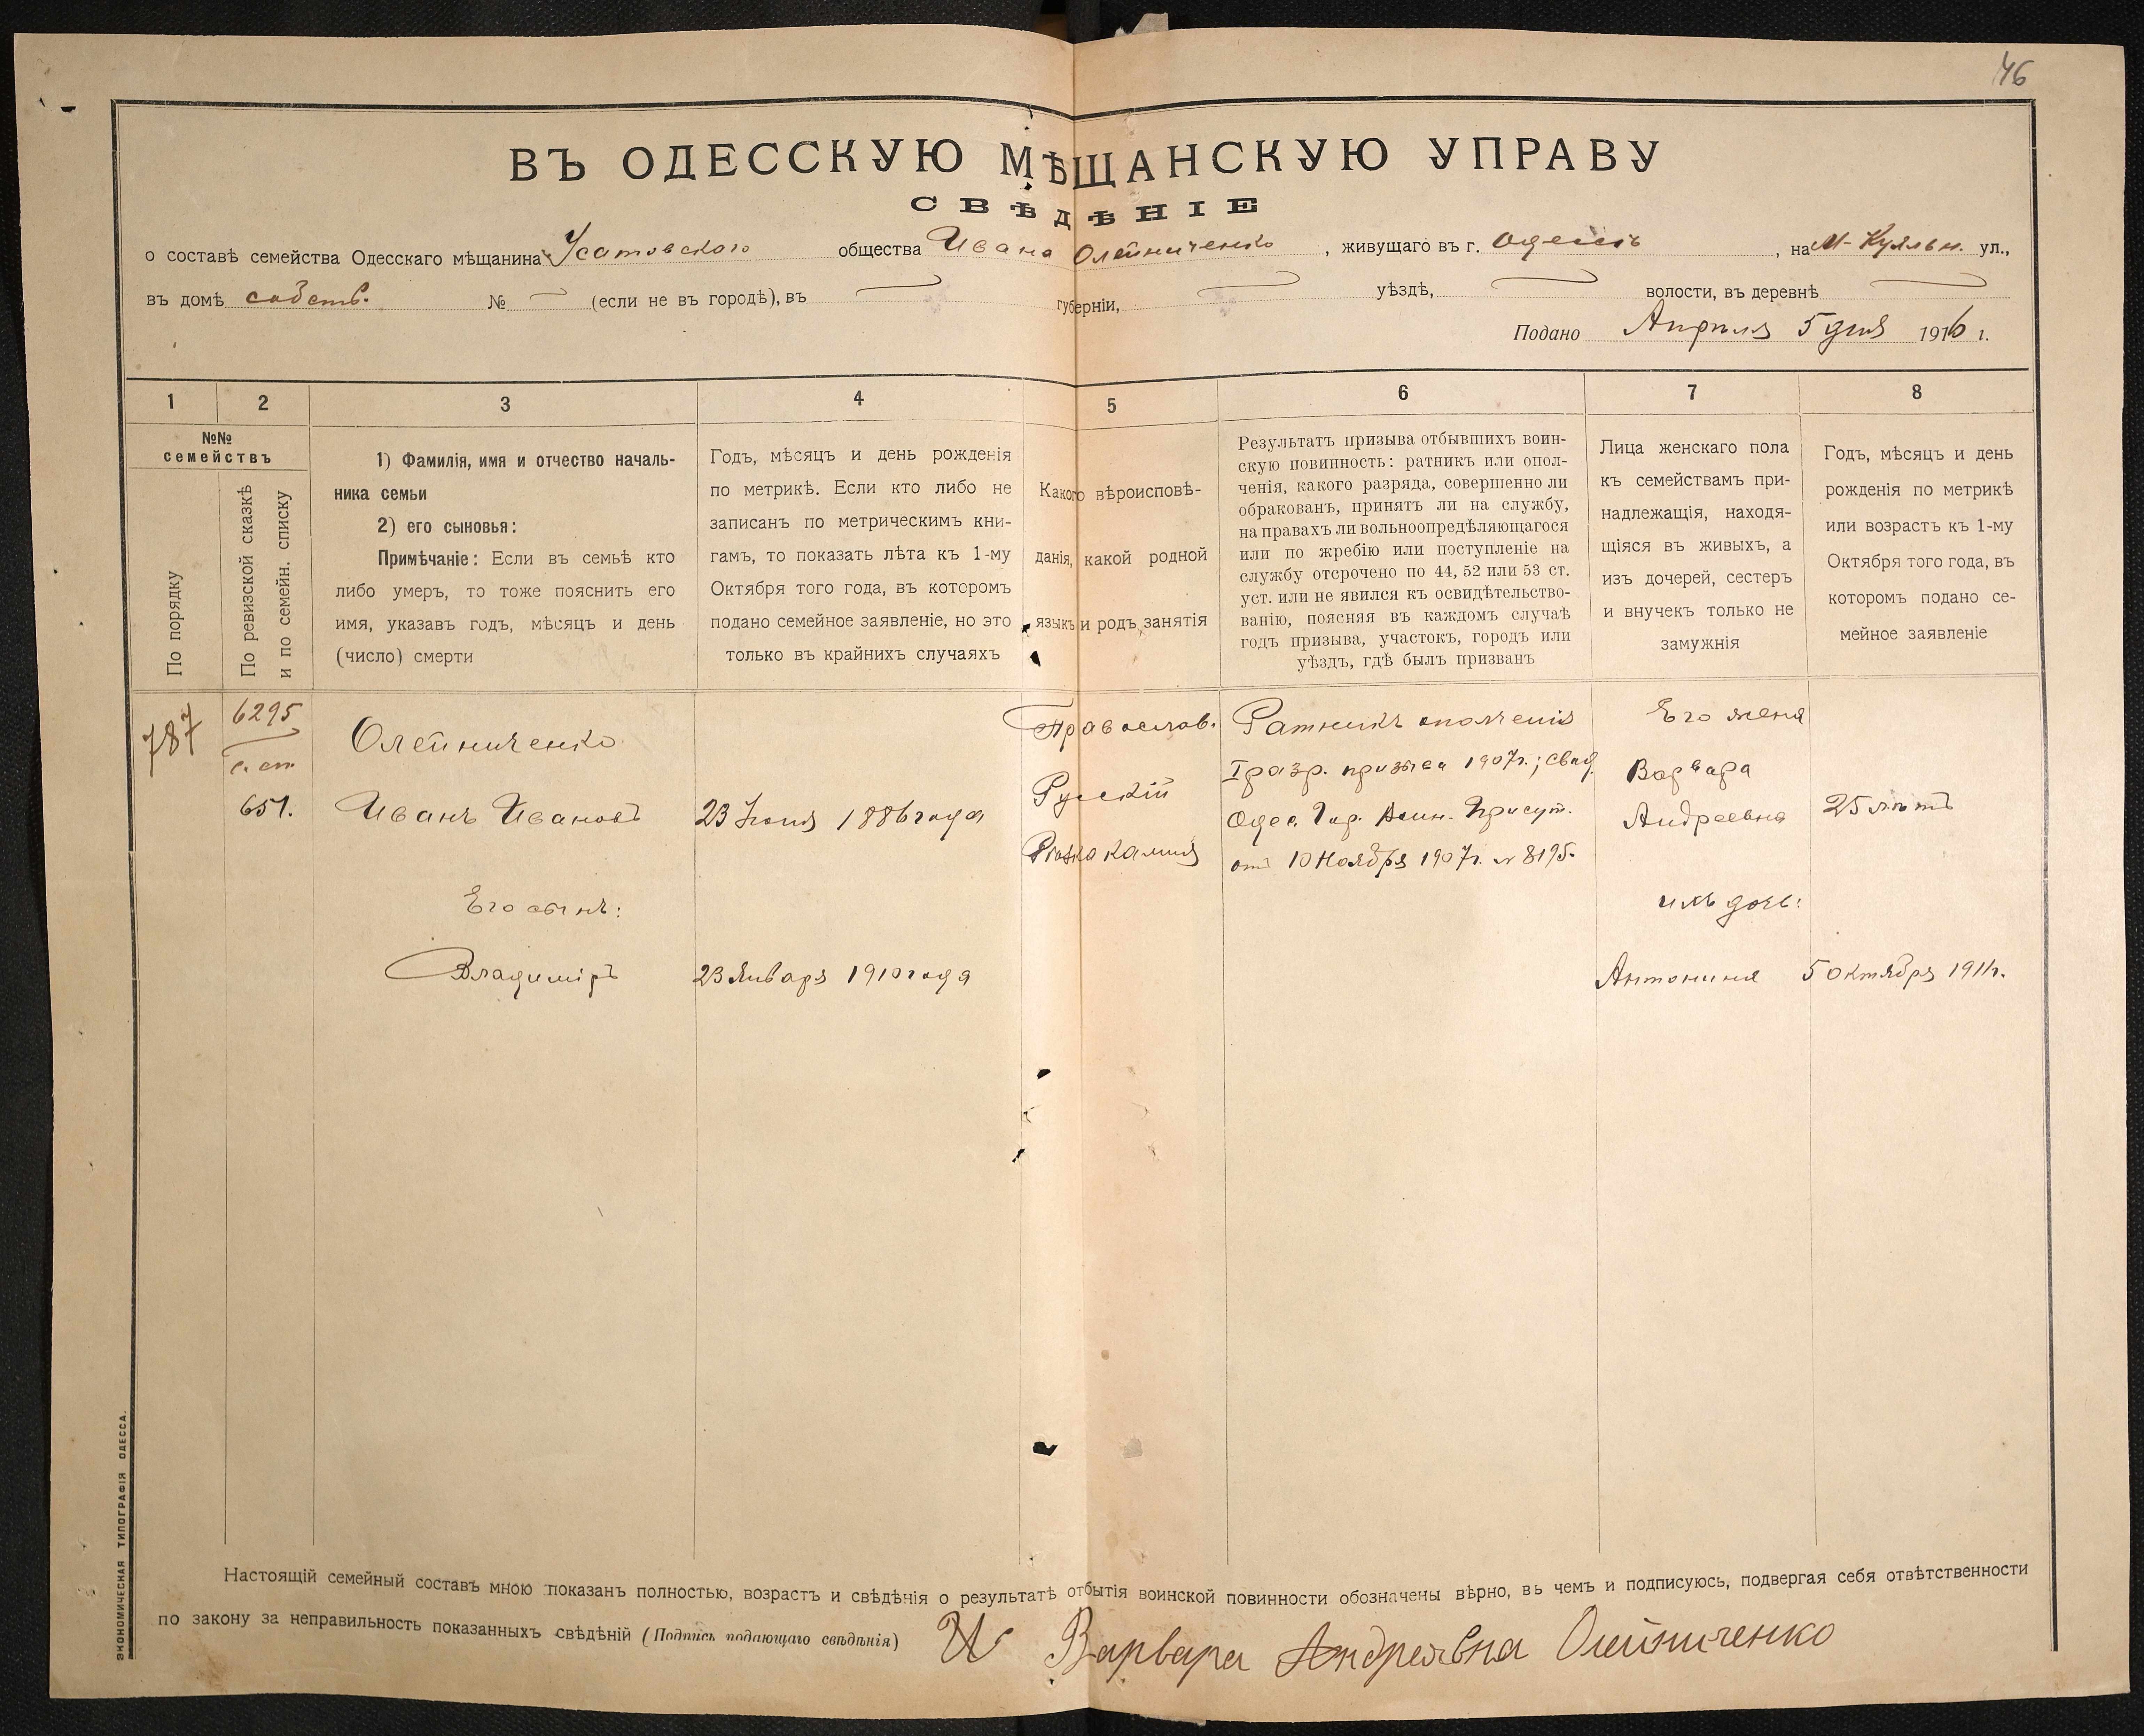 46
ВЪ ОДЕССКУЮ МѢЩАНСКУЮ УПРАВУ
СВѢДѢНІЕ
о составѣ семейства Одесскаго мѣщанина Усатовского общества Ивана Олейниченко, живущаго въ г. Одессѣ, на М-Куяльн. ул.,
въ домѣ собств. № (если не въ городѣ), въ губерніи, уѣздѣ, волости, въ деревнѣ
Подано Апрѣля 5 дня 1916 г.
1 2 3 4 5 6 7 8
№№
семействъ
По порядку
По ревизской сказкѣ
и по семейн. списку
1) Фамилія, имя и отчество началь-
ника семьи
2) его сыновья:
Примѣчаніе: Если въ семьѣ кто
либо умеръ, то тоже пояснить его
имя, указавъ годъ, мѣсяцъ и день
(число) смерти
Годъ, мѣсяцъ и день рожденія
по метрикѣ. Если кто либо не
записанъ по метрическимъ кни-
гамъ, то показать лѣта къ 1-му
Октября того года, въ которомъ
подано семейное заявленіе, но это
только въ крайнихъ случаяхъ
Какого вѣроисповѣ-
данія, какой родной
языкъ и родъ занятія
Результатъ призыва отбывшихъ воин-
скую повинность: ратникъ или опол-
ченія, какого разряда, совершенно ли
обракованъ, принятъ ли на службу,
на правахъ ли вольноопредѣляющагося
или по жребію или поступленіе на
службу отсрочено по 44, 52 или 53 ст.
уст. или не явился къ освидѣтельство-
ванію, поясняя въ каждомъ случаѣ
годъ призыва, участокъ, городъ или
уѣздъ, гдѣ былъ призванъ
Лица женскаго пола
къ семействамъ при-
надлежащія, находя-
щіяся въ живыхъ, а
изъ дочерей, сестеръ
и внучекъ только не
замужнія
Годъ, мѣсяцъ и день
рожденія по метрикѣ
или возрастъ къ 1-му
Октября того года, въ
которомъ подано се-
мейное заявленіе
787
6295
с. сп.
651.
Олейниченко
Иванъ Ивановъ
23 Іюня 1886 года
Православ.
Русскій
Ратникъ ополченія
I разр. призыва 1907 г.; свид.
Одес. Гор. Воин. Присут.
отъ 10 Ноября 1907 г. № 8195.
Его жена
Варвара
Андреевна
25 лѣтъ
Его сынъ:
Владиміръ
23 Января 1910 года
ихъ дочь:
Антонина
5 октября 1911 г.
Настоящій семейный составъ мною показанъ полностью, возрастъ и свѣдѣнія о результатѣ отбытія воинской повинности обозначены вѣрно, въ чемъ и подписуюсь, подвергая себя отвѣтственности
по закону за неправильность показанныхъ свѣдѣній (Подпись подающаго свѣдѣнія) Варвара Андреявна Олейниченко
ЭКОНОМИЧЕСКАЯ ТИПОГРАФІЯ ОДЕССА.